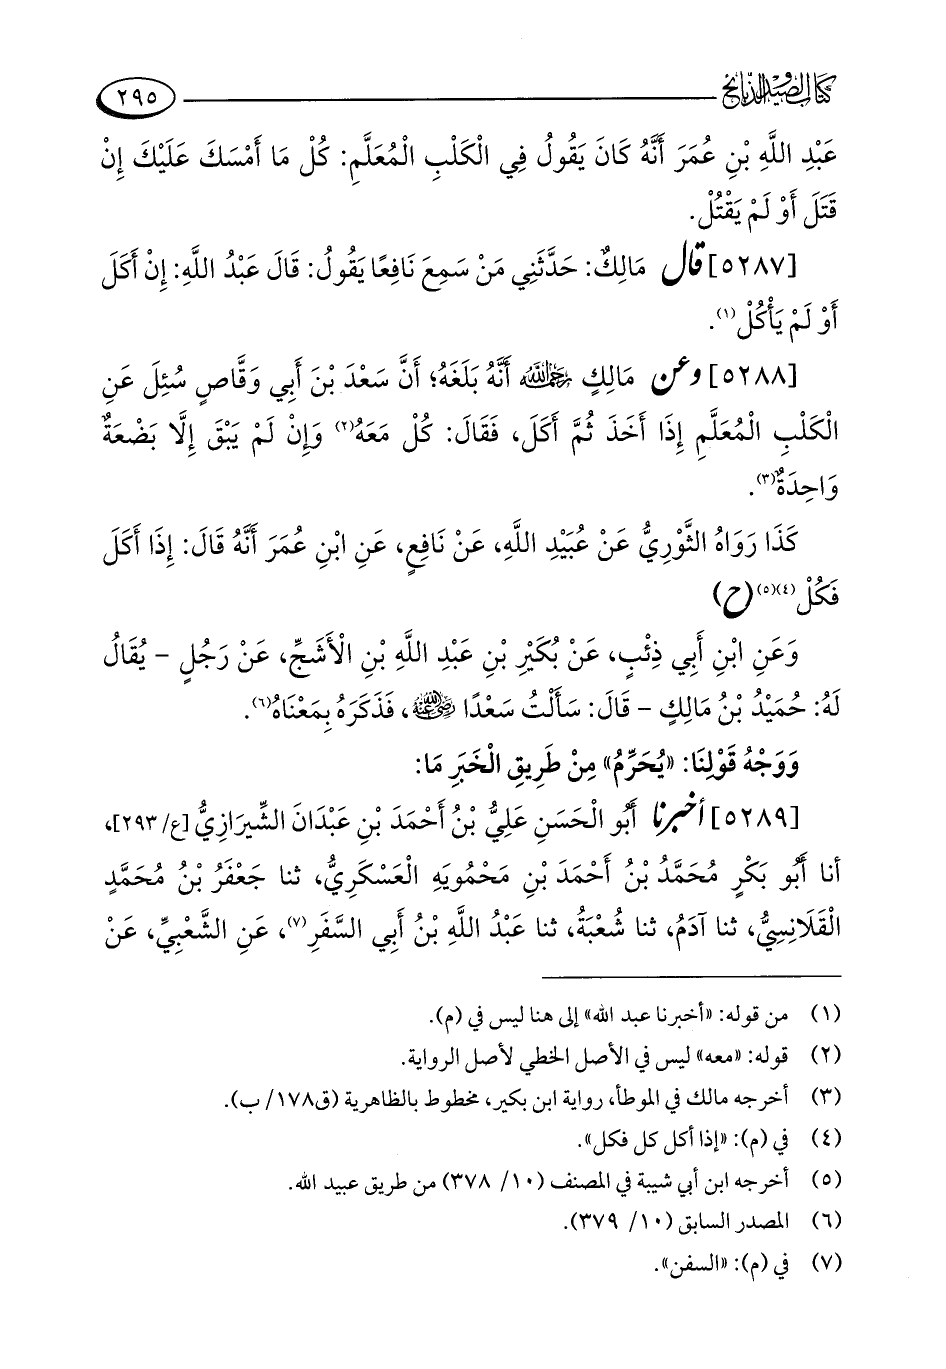 كتاب الصيد والذبائح
٢٩٥
عَبْدِ اللَّهِ بْنِ عُمَرَ أَنَّهُ كَانَ يَقُولُ فِي الْكَلْبِ الْمُعَلَّمِ: كُلْ مَا أَمْسَكَ عَلَيْكَ إِنْ
قَتَلَ أَوْ لَمْ يَقْتُلْ.
[٥٢٨٧] قال مَالِكٌ: حَدَّثَنِي مَنْ سَمِعَ نَافِعًا يَقُولُ: قَالَ عَبْدُ اللَّهِ: إِنْ أَكَلَ
أَوْ لَمْ يَأْكُلْ(١).
[٥٢٨٨] وعن مَالِكٍ رَحِمَهُ اللَّهُ أَنَّهُ بَلَغَهُ؛ أَنَّ سَعْدَ بْنَ أَبِي وَقَّاصٍ سُئِلَ عَنِ
الْكَلْبِ الْمُعَلَّمِ إِذَا أَخَذَ ثُمَّ أَكَلَ، فَقَالَ: كُلْ مَعَهُ(٢) وَإِنْ لَمْ يَبْقَ إِلَّا بَضْعَةٌ
وَاحِدَةٌ(٣).
كَذَا رَوَاهُ الثَّوْرِيُّ عَنْ عُبَيْدِ اللَّهِ، عَنْ نَافِعٍ، عَنِ ابْنِ عُمَرَ أَنَّهُ قَالَ: إِذَا أَكَلَ
فَكُلْ(٤)(٥) (ح)
وَعَنِ ابْنِ أَبِي ذِئْبٍ، عَنْ بُكَيْرِ بْنِ عَبْدِ اللَّهِ بْنِ الْأَشَجِّ، عَنْ رَجُلٍ - يُقَالُ
لَهُ: حُمَيْدُ بْنُ مَالِكٍ - قَالَ: سَأَلْتُ سَعْدًا رَضِيَ اللَّهُ عَنْهُ، فَذَكَرَهُ بِمَعْنَاهُ(٦).
وَوَجْهُ قَوْلِنَا: «يُحَرَّمُ» مِنْ طَرِيقِ الْخَبَرِ مَا:
[٥٢٨٩] أخبرنا أَبُو الْحَسَنِ عَلِيُّ بْنُ أَحْمَدَ بْنِ عَبْدَانَ الشِّيرَازِيُّ [ع/ ٢٩٣]،
أنا أَبُو بَكْرٍ مُحَمَّدُ بْنُ أَحْمَدَ بْنِ مَحْمُويَهِ الْعَسْكَرِيُّ، ثنا جَعْفَرُ بْنُ مُحَمَّدٍ
الْقَلَانِسِيُّ، ثنا آدَمُ، ثنا شُعْبَةُ، ثنا عَبْدُ اللَّهِ بْنُ أَبِي السَّفَرِ(٧)، عَنِ الشَّعْبِيِّ، عَنْ
(١) من قوله: «أخبرنا عبد الله» إلى هنا ليس في (م).
(٢) قوله: «معه» ليس في الأصل الخطي لأصل الرواية.
(٣) أخرجه مالك في الموطأ، رواية ابن بكير، مخطوط بالظاهرية (ق١٧٨/ ب).
(٤) في (م): «إذا أكل كل فكل».
(٥) أخرجه ابن أبي شيبة في المصنف (١٠/ ٣٧٨) من طريق عبيد الله.
(٦) المصدر السابق (١٠/ ٣٧٩).
(٧) في (م): «السفن».